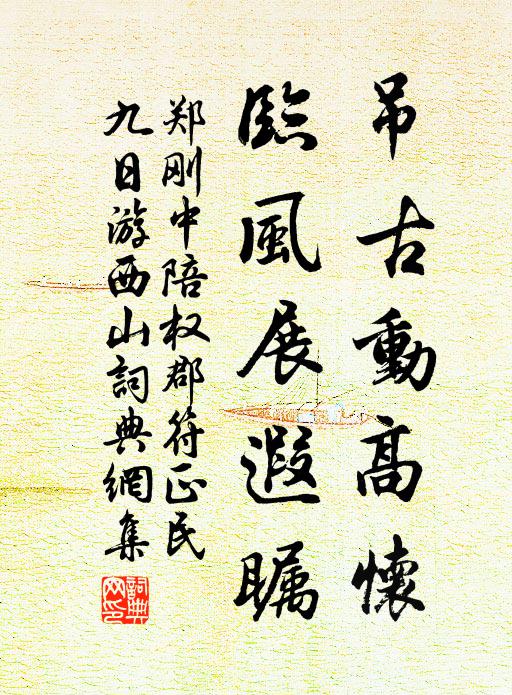 吊古動高懷
臨風展遐矚
郑刚中陪权郡符正民
九日游西山詞典網集
詞典網印